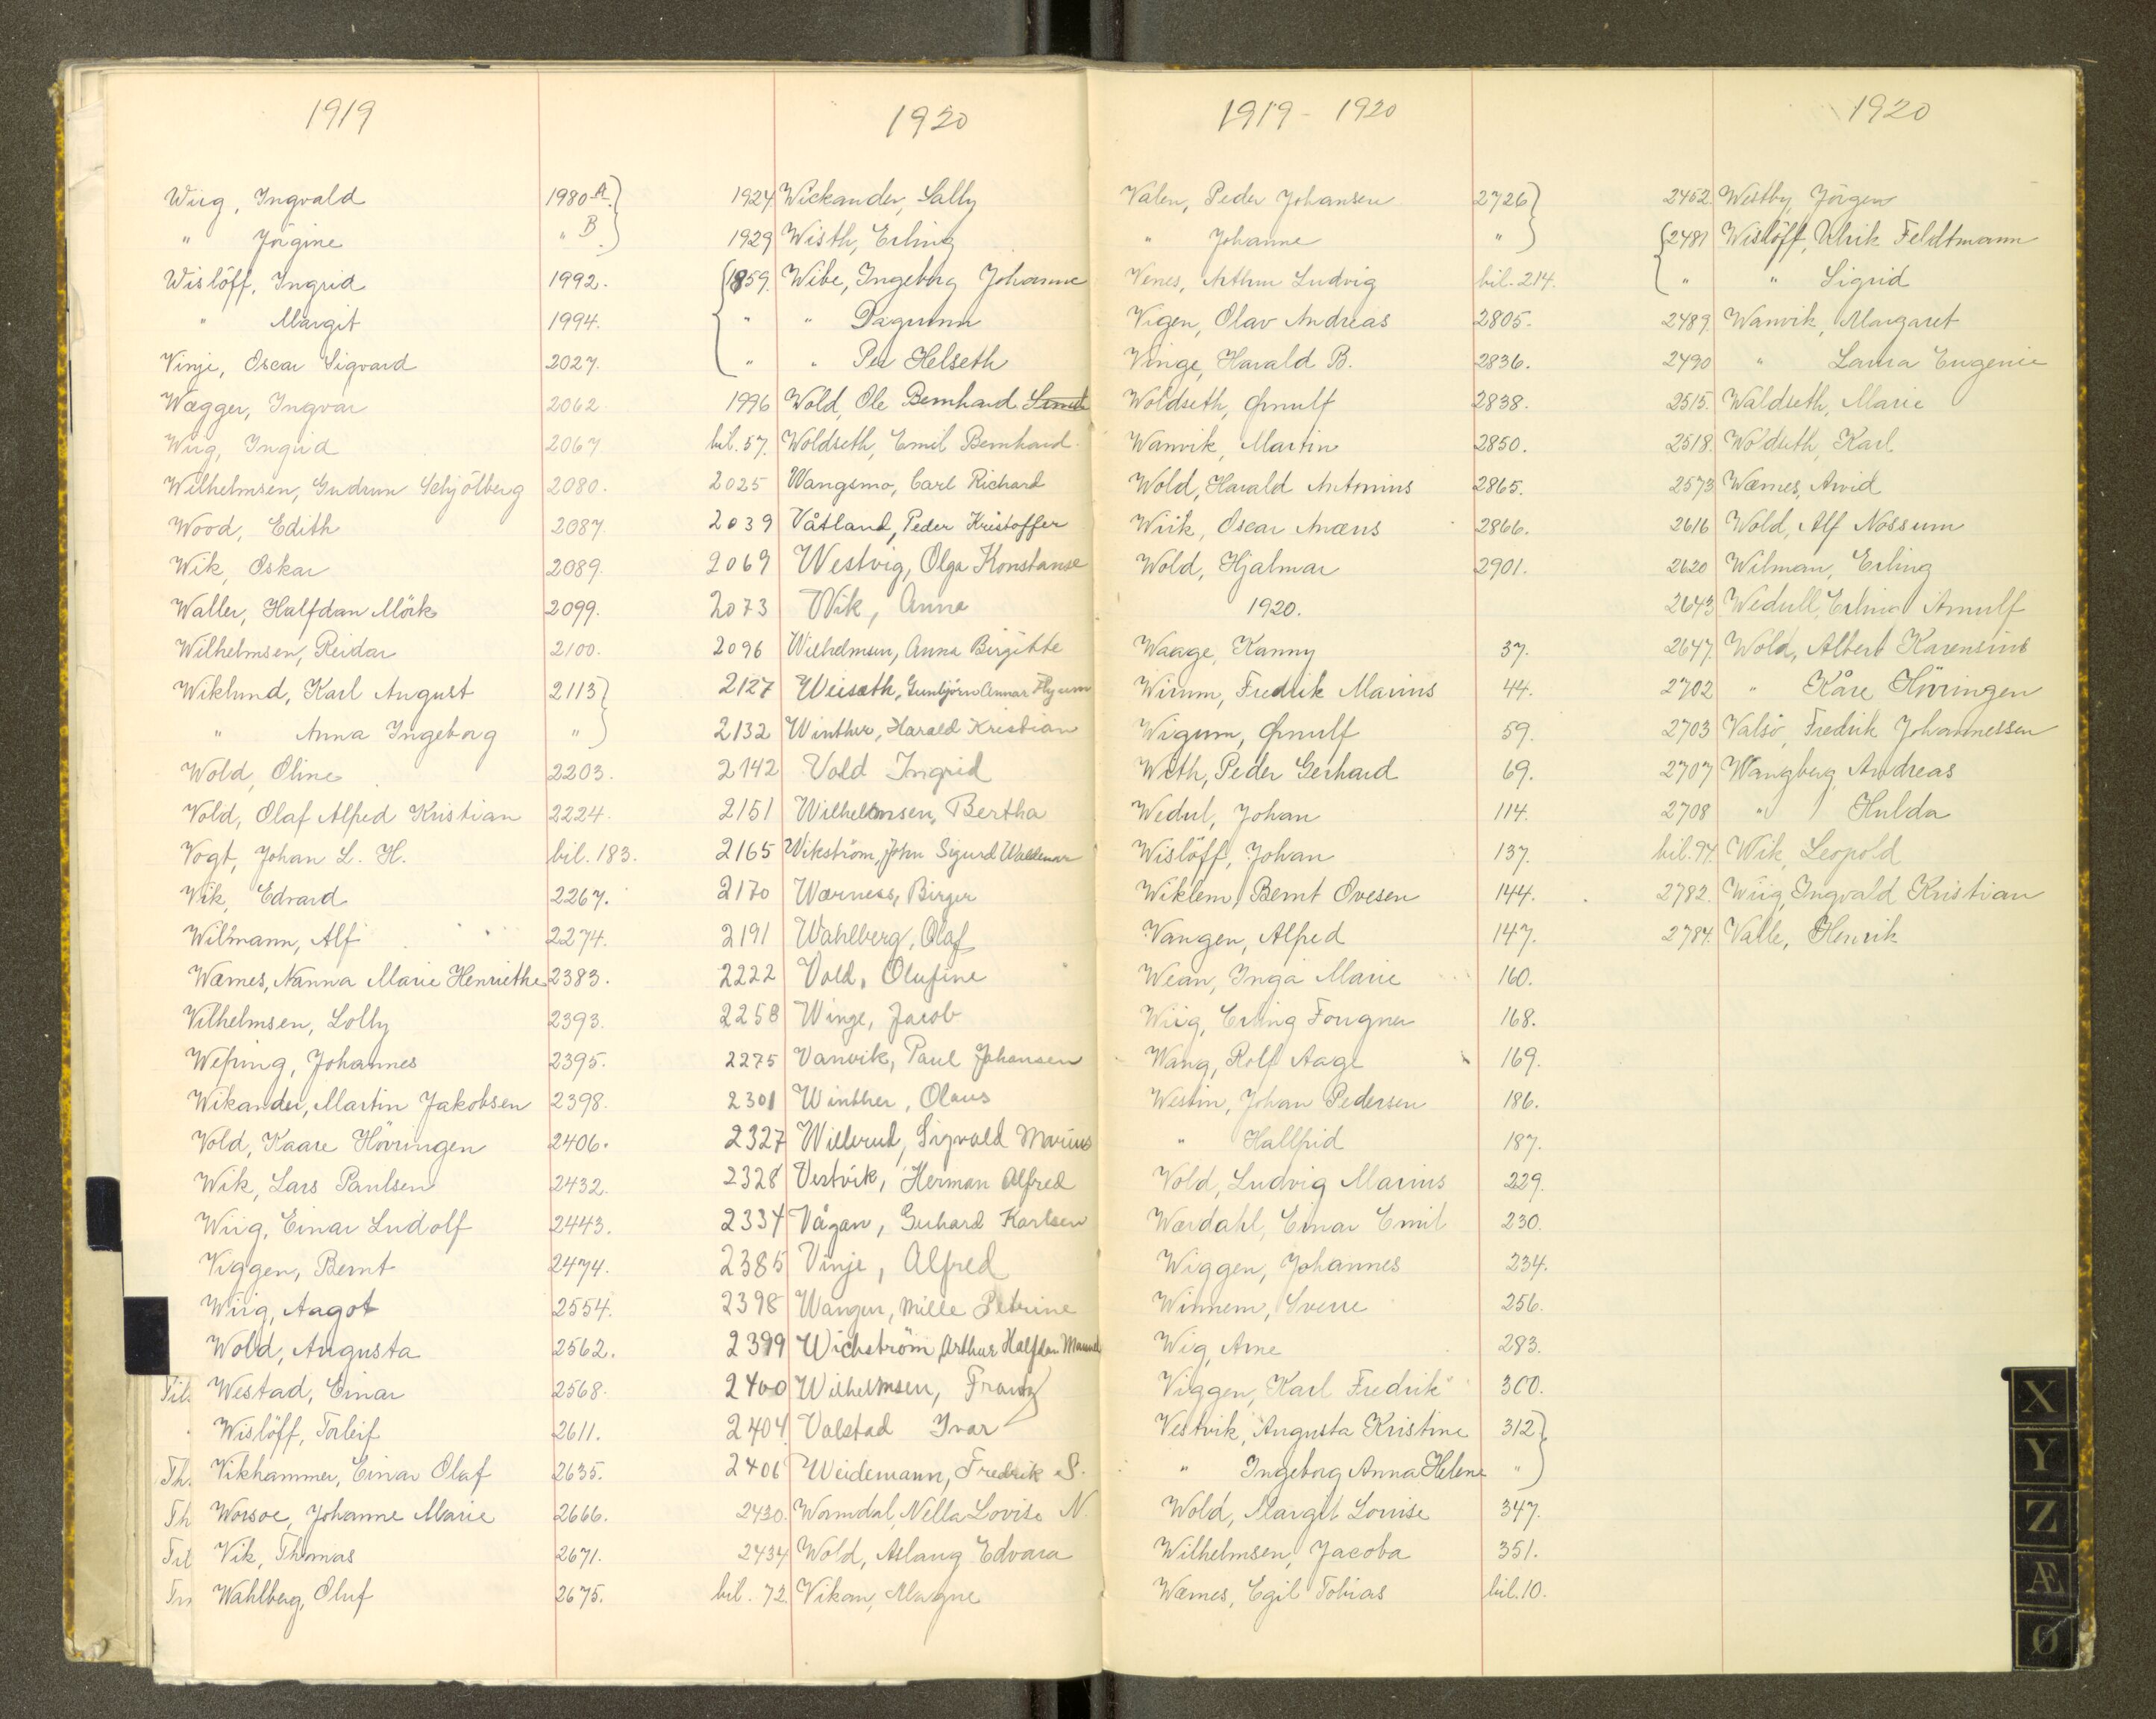 1919
Wiig, Ingvald 1980 A.
" Jörgine " B.
Wislöff, Ingrid 1992.
" Margit 1994.
Vinje, Oscar Sigvard 2027.
Wægger, Ingvar 2062
Wiig, Ingrid 2067
Wilhelmsen, Gudrun Schjölberg 2080.
Wood, Edith 2087.
Wik, Oskar 2089.
Waller, Halfdan Mörk 2099.
Wilhelmsen, Reidar 2100.
Wiklund, Karl August 2113
" Anna Ingeborg "
Wold, Oline 2203.
Vold, Olaf Alfred Kristian 2224.
Vogt, Johan L. H. bil. 183.
Vik, Edvard 2267.
Wilmann, Alf 2274.
Wærnes, Nanna Marie Henriethe 2383.
Vilhelmsen, Lolly 2393.
Wefring, Johannes 2395.
Wikander, Martin Jakobsen 2398.
Vold, Kaare Hövringen 2406.
Wik, Lars Paulsen 2432.
Wiig, Einar Ludolf 2443.
Viggen, Bernt 2474.
Wiig, Aagot 2554.
Wold, Augusta 2562.
Westad, Einar 2568.
Wislöff, Torleif 2611.
Vikhammer, Einar Olaf 2635.
Worsoe, Johanne Marie 2666.
Vik, Thomas 2671.
Wahlberg, Oluf 2675.
1920
1924 Wickander, Sally
1929 Wisth, Erling
1859. Wibe, Ingeborg Johanne
" " Dagunn
" " Per Helseth
1996 Wold, Ole Bernhard
bil. 57. Woldseth, Emil Bernhard
2025 Wangsmo, Carl Richard
2039 Våtland, Peder Kristoffer
2069 Westvig, Olga Konstanse
2073 Wik, Anna
2096 Wilhelmsen, Anna Birgitte
2127 Weiseth, Gunbjörn Annar
2132 Winther, Harald Kristian
2142 Vold Ingrid
2151 Wilhelmsen, Bertha
2165 Wikström, John Sigurd Waldemar
2170 Wærness, Birger
2191 Wahlberg, Olaf
2222 Vold, Olufine
2258 Winge, Jacob
2275 Vanvik, Paul Johansen
2301 Winther, Olaus
2327 Willerud, Sigvald Marius
2328 Vestvik, Herman Alfred
2334 Vågan, Gerhard Karlsen
2385 Vinje, Alfred
2398 Wangen, Mille Petrine
2399 Wichström, Arthur Halfdan
2400 Wilhelmsen, Frantz
2404 Valstad Ivar
2406 Weidemann, Fredrik S.
2430. Wamdal, Nella Lovise N.
2434 Wold, Aslaug Edvara
bil. 72. Vikan, Magne
1919 - 1920
Valen, Peder Johansen 2726
" Johanne "
Venes, Arthur Ludvig bil. 214.
Vigen, Olav Andreas 2805.
Vinge, Harald B. 2836.
Woldseth, Ørnulf 2838.
Wanvik, Martin 2850.
Wold, Harald Antonius 2865.
Wiik, Oscar Anæus 2866.
Wold, Hjalmar 2901.
1920.
Waage, Kanny 37.
Wirum, Fredrik Marius 44.
Wigum, Ørnulf 59.
Weth, Peder Gerhard 69.
Wedul, Johan 114.
Wislöff, Johan 137.
Wiklem, Bernt Ovesen 144.
Vangen, Alfred 147.
Wean, Inga Marie 160.
Wiig, Erling Fougner 168.
Wang, Rolf Aage 169.
Westin, Johan Pedersen 186.
" Hallfrid 187.
Vold, Ludvig Marius 229.
Wærdahl, Einar Emil 230.
Wiggen, Johannes 234.
Winnem, Sverre 256.
Wig, Arne 283.
Viggen, Karl Fredrik 300.
Vestvik, Augusta Kristine 312
" Ingeborg Anna Helene "
Wold, Margit Louise 347.
Wilhelmsen, Jacoba 351.
Wærnes, Egil Tobias bil. 10.
1920
2452. Westby, Jörgen
2481 Wislöff, Ulrik Feldtmann
" " Sigrid
2489. Wanvik, Margaret
2490 " Laura Eugenie
2515. Waldseth, Marie
2518. Woldseth, Karl
2573 Wærnes, Arvid
2616 Wold, Alf Nossum
2620 Wilman, Erling
2643 Wedull, Erling Arnulf
2647. Wold, Albert Karensius
2702 " Kåre Hövringen
2703 Valsö, Fredrik Johannessen
2707 Wangberg, Andreas
2708 " Hulda
bil. 94. Wik, Leopold
2782. Wiig, Ingvald Kristian
2784. Valle, Henrik
X
Y
Z
Æ
Ø